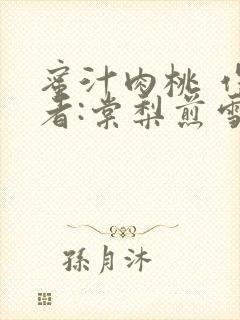 蜜汁肉桃
者:棠梨煎雪
孫月沐